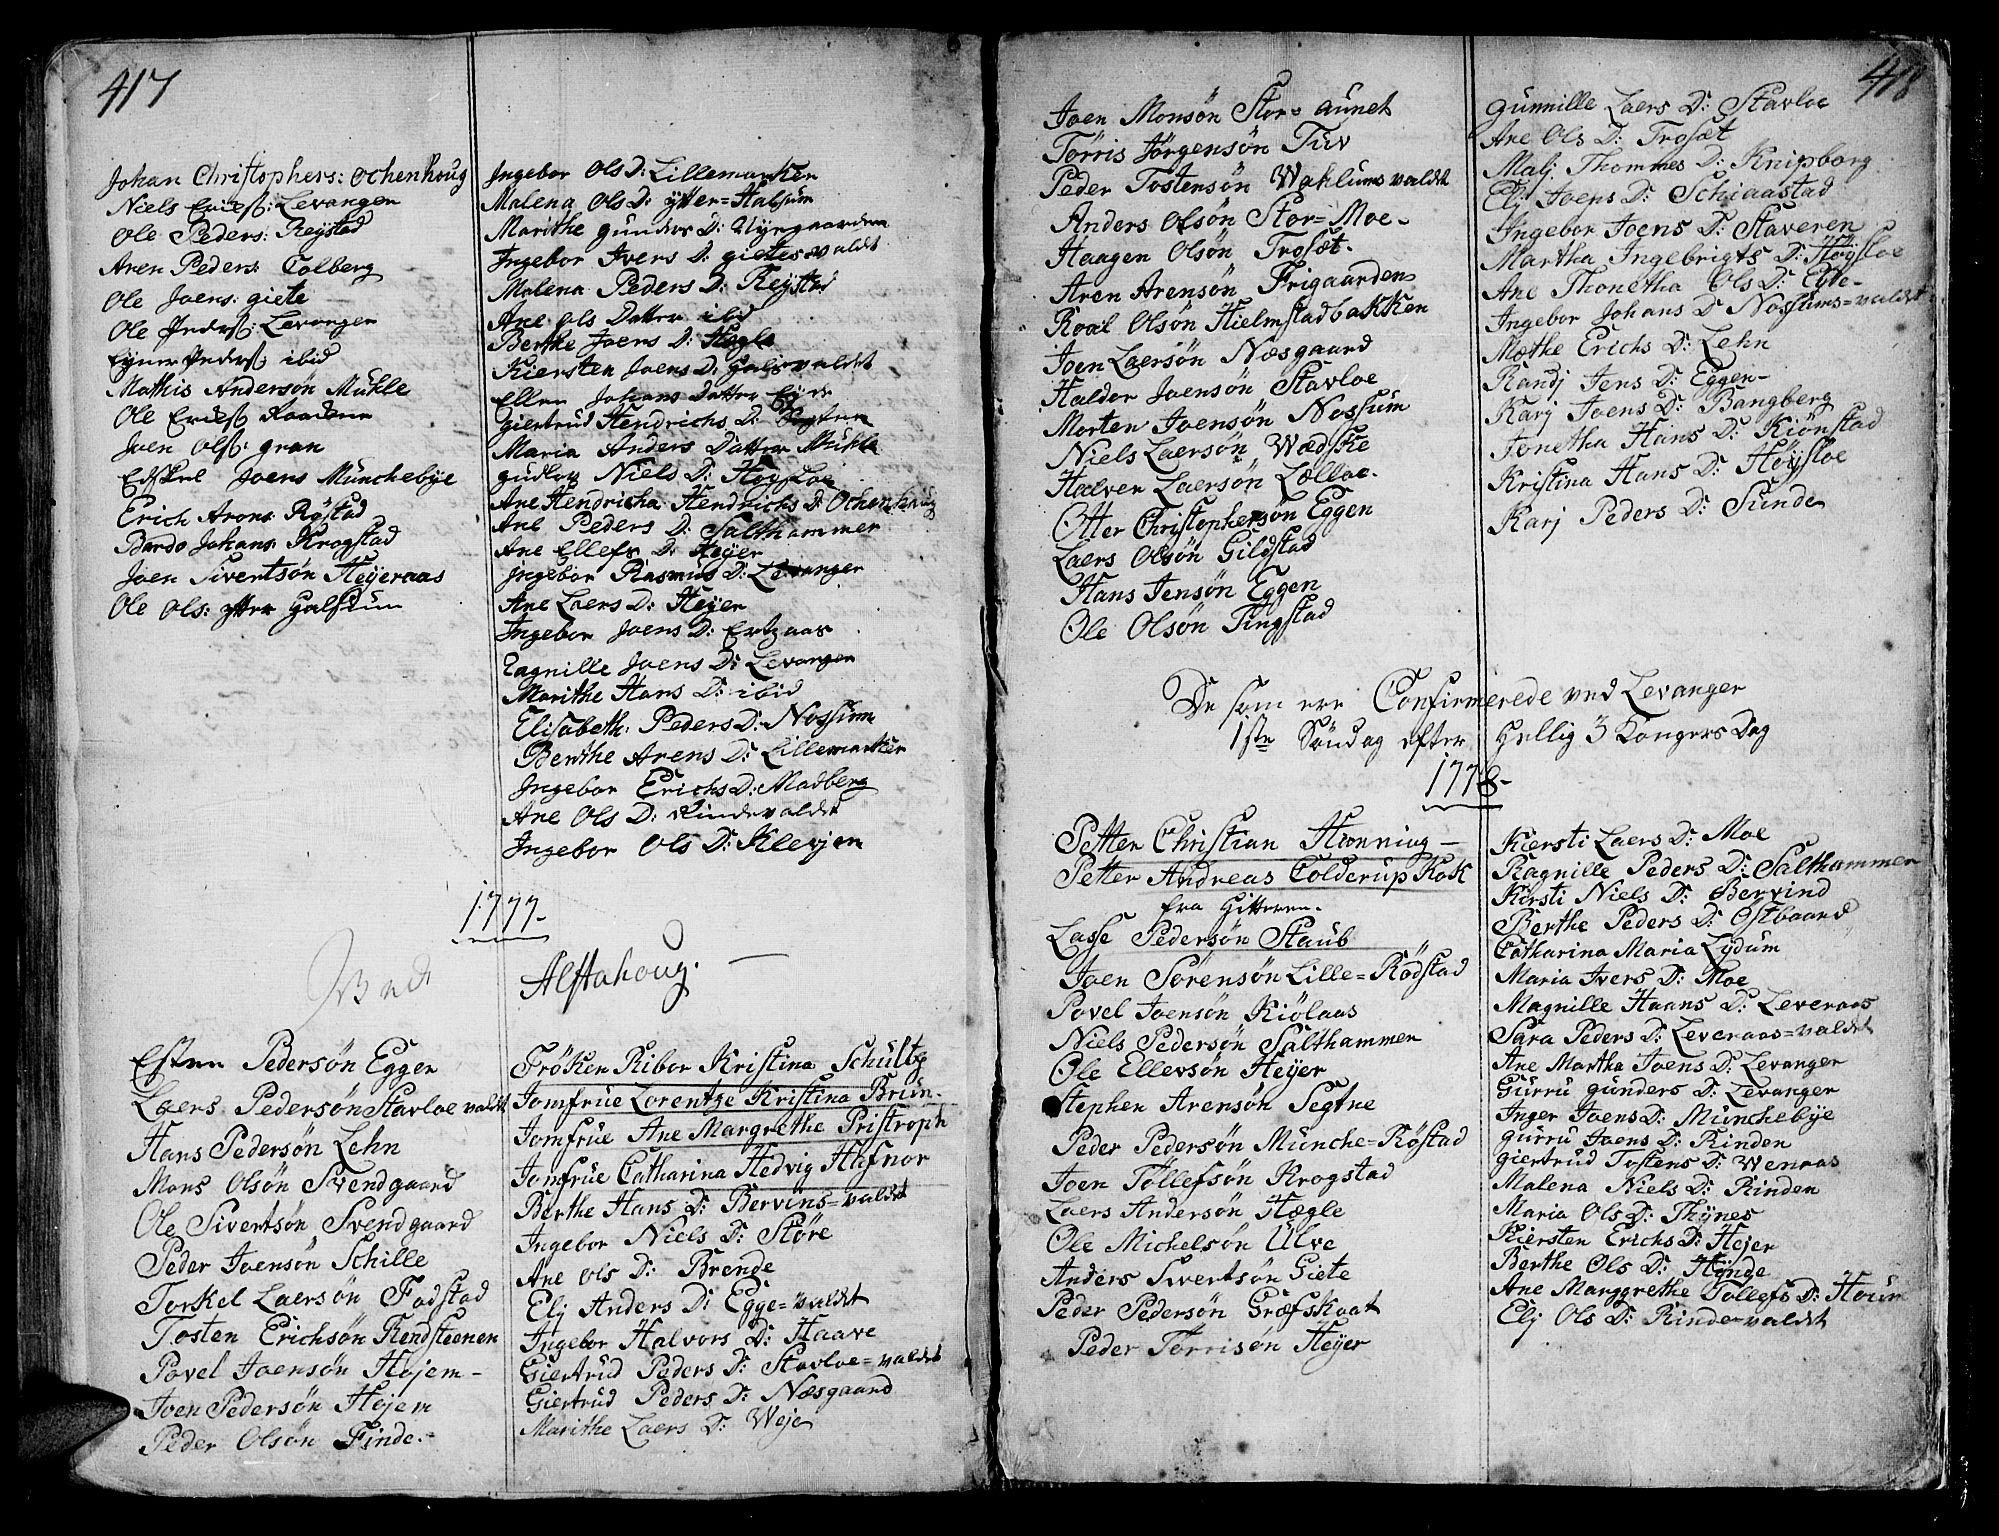 417
Johan Christophers: Ochenhoug
Niels Erics: Levangen
Ole Peders: Reystad
Aren Peders: Colberg
Ole Joens: giete
Ole Peders: Levanger
Eyner Peders: ibid
Mathis Andersøn Mühle
Ole Erics
Joen Ols: gran
Joens Münchebÿe
Erich Arons Røstad
Bardo Johans Krogstad
Joen Sivertsøn Heyeraas
Ole Ols: ytter Halsium
Ingebor Ols D: Lillemarken
Malena Ols D: ytter=Halsum
Marithe gunders D: Nyegaarden
Ingebor Ivers D: gietesvaldt
Malena Peders D: Reystad
Ane Ols Datter ibid
Berthe Joens D: Hogle
Kiersten Joens D: Halsvaldt
Ellen Johans Datter Eyde
Giertrud Hendrichs D: Segtnen
Maria Anders Datter Mühle
gudlog Niels D: Høysloe
Ane Hendricha Hendrichs D: Ochenhoug
Ane Peders D: Salthammer
Ane Ellefs D: Heyer
Ingebor Rasmus D: Levanger
Ane Laers D: Heyer
Ingebor Joens D: Ertzaas
Ragnille Joens D: Levangen
Marithe Hans D: ibid
Elisabeth: Peders D: Nossum
Berthe Arens D: Lillemarken
Ingebor Erichs D: Madberg
Ane Ols D: Rindevaldet
Ingebor Ols D: Klevjen
1777-
Ved Alstahoug. —
Esten Pedersøn Eggen
Laers Pedersøn Stavloevaldt
Hans Pedersøn Lehn
Mons Olsøn Svendgaard
Ole Sivertsøn Svendgaard
Peder Joensøn Schille
Torkel Laersøn Fadstad
Tosten Erichsøn Rendsteenen
Povel Joensøn Højem -
Joen Pedersøn Højem
Peder Olsøn Finde.-
Frøken Ribor Kristina Schultz
Jomfrue Lorentze Kristina Brün-
Jomfrue Ane Margrethe Pristroph
Jomfrue Catharina Hedvig Hafnor
Berthe Hans D: Bervins=valdt
Ingebor Niels D: Støre
Ane Ols D: Brende
Elj Anders D: Egge=valdet
Ingebor Halvors D: Haave
Giertrud Peders D: Stavloe=valdet
Giertrud Peders D: Næsgaard
Marithe Laers D: Weje
418
Joen Monsøn Stor=aunet
Tørris Jørgensøn Tuv
Peder Tostensøn Wohlumsvaldet
Anders Olsøn Stor=Moe-
Haagen Olsøn Trosæt-
Aren Arensøn Frigaarden
Roal Olsøn Hielmstadbakken
Joen Laersøn Næsgaard
Haldor Joensøn Stavloe
Morten Joensøn Nossum
Niels Laersøn Wædskie
Halver Laersøn Lælloe-
Otter Christophersøn Eggen
Laers Olsøn Gildstad
Hans Jensøn Eggen
Ole Olsøn Tingstad
gunnille Laers D: Stavloe
Ane Ols D: Trosæt
Malj Thommes D: Knipborg
Elj Joens D: Schiaastad
Ingebor Joens D: Staveren
Martha Ingebrigts D: Høysloe
Ane Thonetha Ols D: Egle-
Ingebor Johans D Nossums=valdet
Mæthe Erichs D: Lehn
Randj Jens D: Eggen-
Karj Joens D: Bangberg
Jonetha Hans D: Kiønstad
Kristina Hans D: Høysloe
Karj Peders D: Sunde
De som ere Confirmerede ved Levanger
1ste Søndag efter Hellig 3 Kongers Dag
1778-
Petter Christian Hønning —
Petter Andreas Colderup Kok
fra Hitteren.
Lasse Pedersøn Staub
Joen Sørensøn Lille=Rødstad
Povel Joensøn Kiølaas
Niels Pedersøn Salthammer
Ole Ellevsøn Heyer
Stephen Arensøn Segtne
Peder Pedersøn Münche-Røstad
Joen Tøllefsøn Krogstad
Laers Andersøn Hægle
Ole Michelsøn Ulve
Anders Sivertsøn Giete
Peder Pedersøn Græfskaat
Peder Tørrisøn Heyer
Kiersti Laers D: Moe
Ragnille Peders D: Salthammer
Kirsti Niels D: Bervind
Berthe Peders D: Østbaard
Catharina Maria Lydum
Maria Ivers D: Moe
Magnille Haans D: Leveraas
Sara Peders D: Leveraas=valdet
Ane Martha Joens D: Levanger
Gurru gunders D: Levanger
Inger Joens D: Münchebÿe
gurru Joens D: Rinden
giertrud Tostens D: Weraas
Malena Niels D: Rinden
Maria Ols D: Thÿnes
Kiersten Erichs D: Hejer
Berthe Ols D: Hynde
Ane Marggrethe Tollefs D: Houn
Elj Ols D: Rinde=valdet